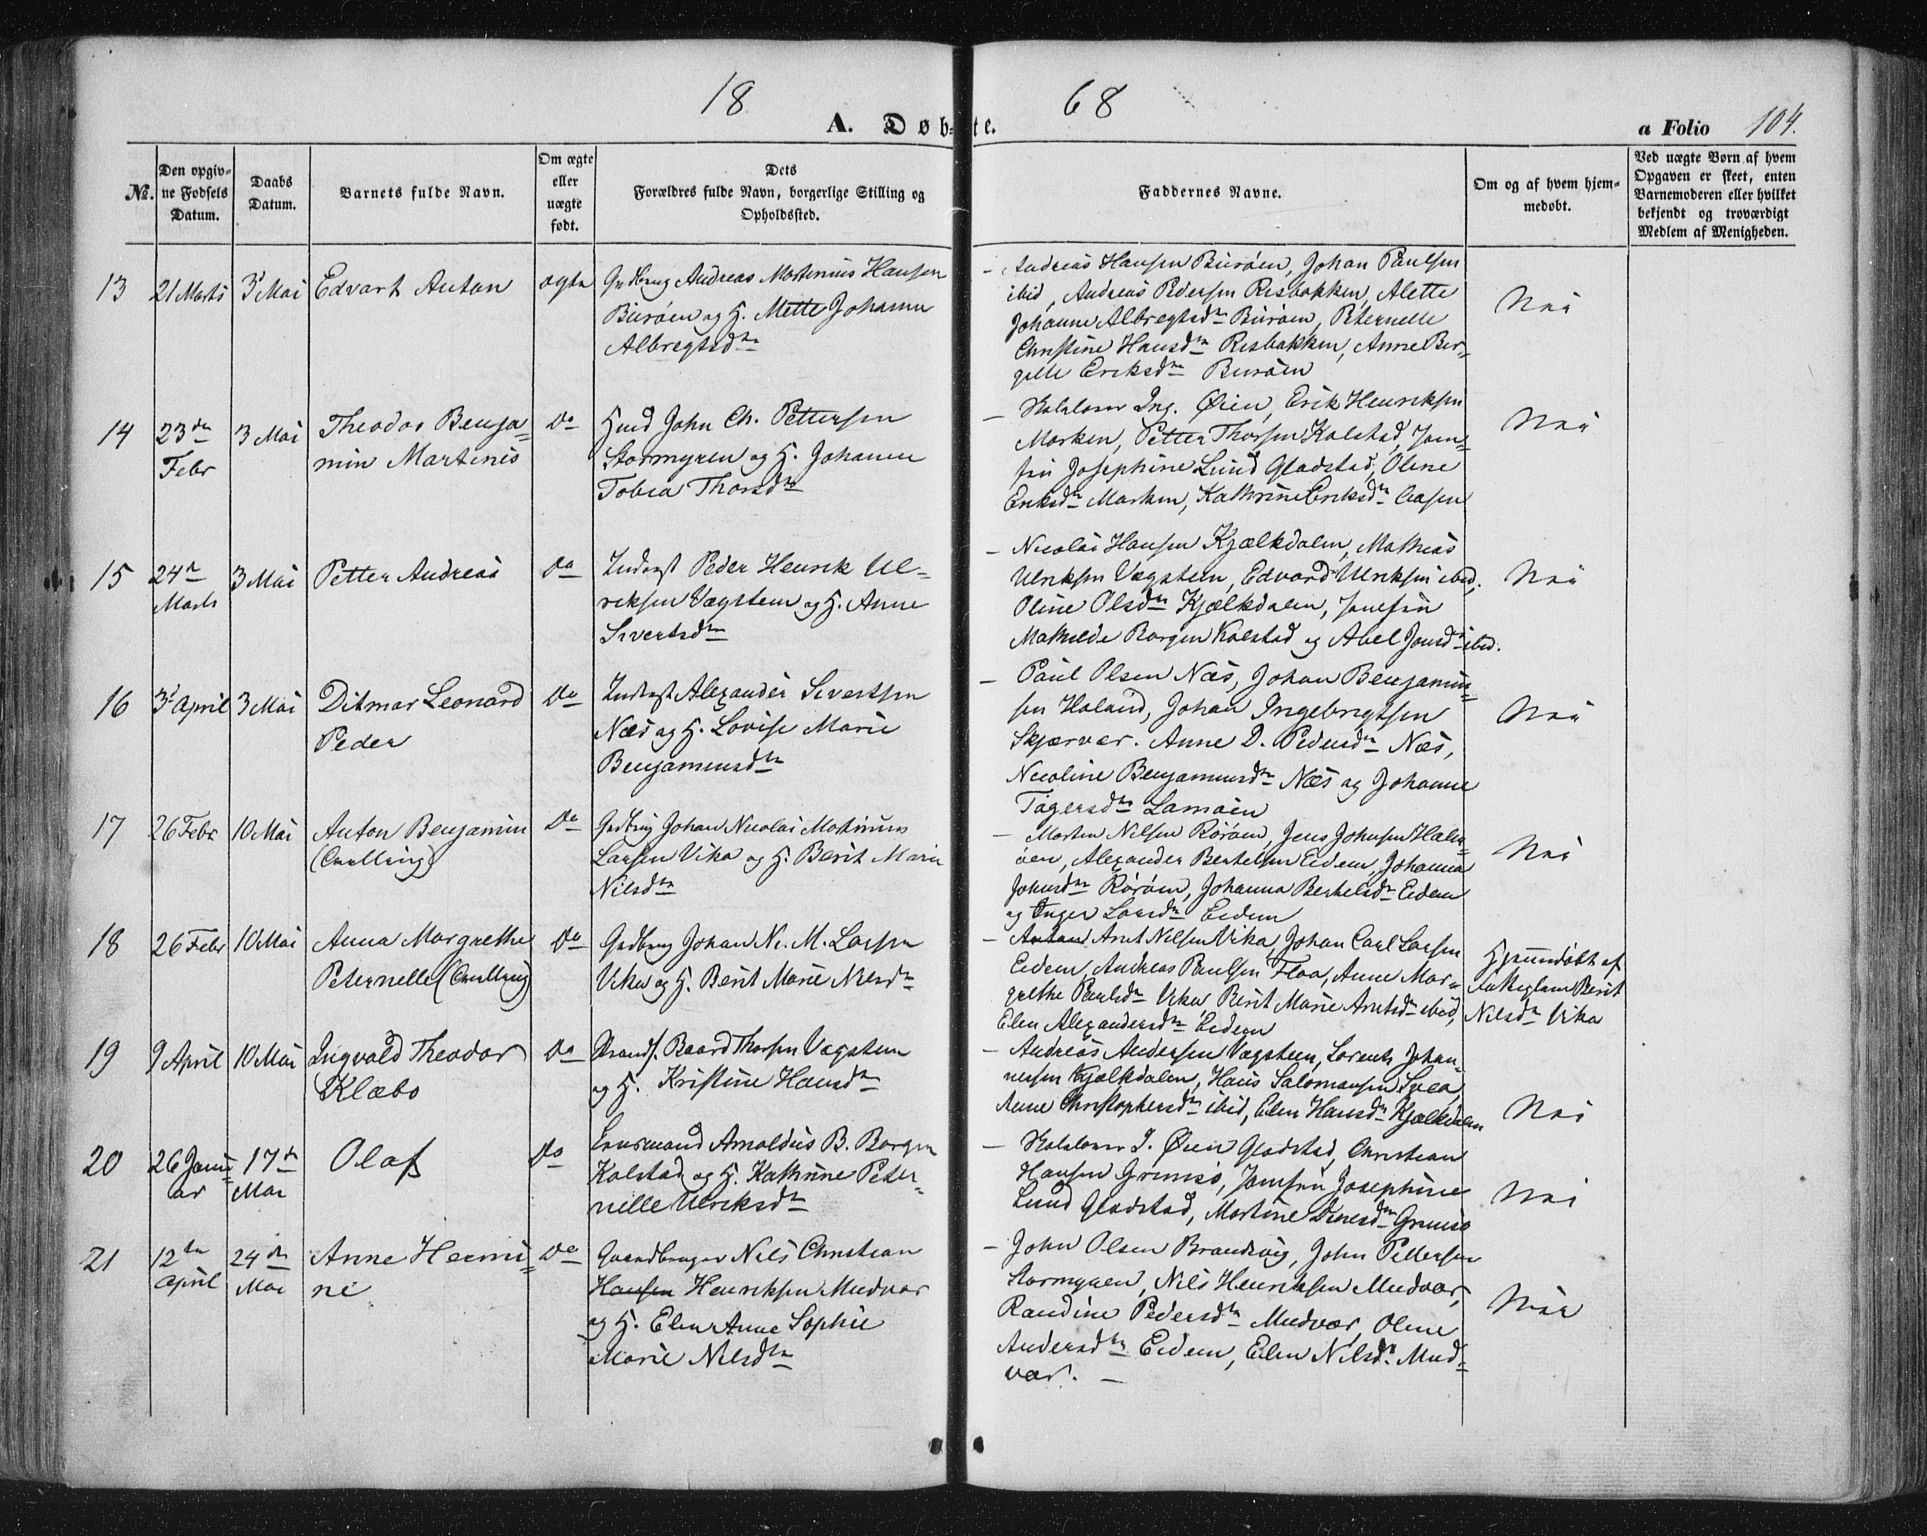 18 68
A. Døbte.
a Folio 104.
No.
Den opgiv-
ne Fødsels
Datum.
Daabs
Datum.
Barnets fulde Navn.
Om ægte
eller
uægte
født.
Dets
Forældres fulde Navn, borgerlige Stilling og
Opholdssted.
Faddernes Navne.
Om og af hvem hjem-
medøbt.
Ved uægte Børn af hvem
Opgaven er skeet, enten
Barnemoderen eller hvilket
bekjendt og troværdigt
Medlem af Menigheden.
13 21 Marts 3 Mai Edvart Anton ægte Gaardbrug Andreas Martinius Hansen
Burøen og H. Mette Johanna
Albregtsdtr
- Andreas Hansen Burøen, Johan Paulsen
ibid, Andreas Pedersen Risbakken, Alette
Johanne Albregtsdtr Burøen, Peternelle
Christine Hansdtr Risbakken, Anne Ber-
gitte Eriksdtr Burøen
Nei
14 23de Febr 3 Mai Theodor Benja-
min Martinis
Do Hmd John Ch. Pettersen
Stormyren og H. Johanna
Tobea Thorsdtr
- Skolelærer Ing. Øien, Erik Henriksen
Marken, Petter Thorsen Kolstad, Jom-
fru Josephine Lund Gladstad, Oline
Eriksdtr Marken, Kathrine Eriksdtr Aasen
Nei
15 24de Marts 3 Mai Petter Andreas Do Inderst Peder Henrik Ul-
riksen Vægstein og H. Anne
Sivertsdtr
- Nicolai Hansen Kjælkdalen, Mathias
Ulriksen Vægstein, Edvard Ulriksen ibid,
Oline Olsdtr Kjælkdalen, Jomfru
Mathilde Borgen Kolstad og Abel Jonsdtr ibid.
Nei
16 3 April 3 Mai Ditmar Leonard
Peder
Do Inderst Alexander Sivertsen
Næs og H. Lovise Marie
Benjaminsdtr
- Paul Olsen Næs, Johan Benjamin-
sen Holand, Johan Ingebrigtsen
Skjærvær. Anne D. Pedersdtr Næs,
Nicoline Benjaminsdtr Næs og Johanne
Tøgersdtr Lamøen
Nei
17 26 Febr 10 Mai Anton Benjamin
(Tvilling)
Do Gaardbrug Johan Nicolai Martinius
Larsen Vika og H. Berit Marie
Nilsdtr
- Morten Nilsen Rørøen, Jens Johnsen Halm-
øen, Alexander Bertelsen Eidem, Johanna
Johnsdtr Rørøen, Johanna Bertelsdtr Eidem
og Inger Larsdtr Eidem
Nei
18 26 Febr 10 Mai Anna Margrethe
Peternelle (Tvilling)
Do Gaardbrug Johan N. M. Larsen
Vika og H. Berit Marie Nilsdtr
- Anton Arnt Nilsen Vika, Johan Carl Larsen
Eidem, Andreas Paulsen Floa, Anne Mar-
grethe Paulsdtr Vika, Berit Marie Arntsdtr ibid,
Elen Alexandersdtr Eidem
Hjemmedøbt af
Enkeglam Berit
Nilsdtr Vika
19 9 April 10 Mai Ingvald Theodor
Klæbo
Do Strands. Baard Thorsen Vægstein
og H. Kristine Hansdtr
- Andreas Andersen Vægstein, Lorents Johan-
nesen Kjælkdalen, Hans Salomonsen Svea,
Anne Christophersdtr ibid, Elen Hansdtr Kjælkdalen
Nei
20 26 Janu-
ar
17de
Mai
Olaf
Do Lensmand Arnoldus B. Borgen
Kolstad og H. Kathrine Peter-
nille Ulriksdtr
- Skolelærer I. Øien Gladstad, Christian
Hansen Grimsø, Jomfru Josephine
Lund Gladstad, Martine Dinesdtr Grimsø
Nei
21 12te
April
24de
Mai
Anne Hermi-
ne
Do Gaardbruger Nils Christian
Hansen Henriksen Mudvær
og H. Elen Anne Sophie
Marie Nilsdtr
- John Olsen Brandvig, John Pettersen
Stormyren, Nils Henriksen Mudvær,
Randine Pedersdtr Mudvær, Oline
Andersdtr Eidem, Elen Nilsdtr Mud-
vær. -
Nei